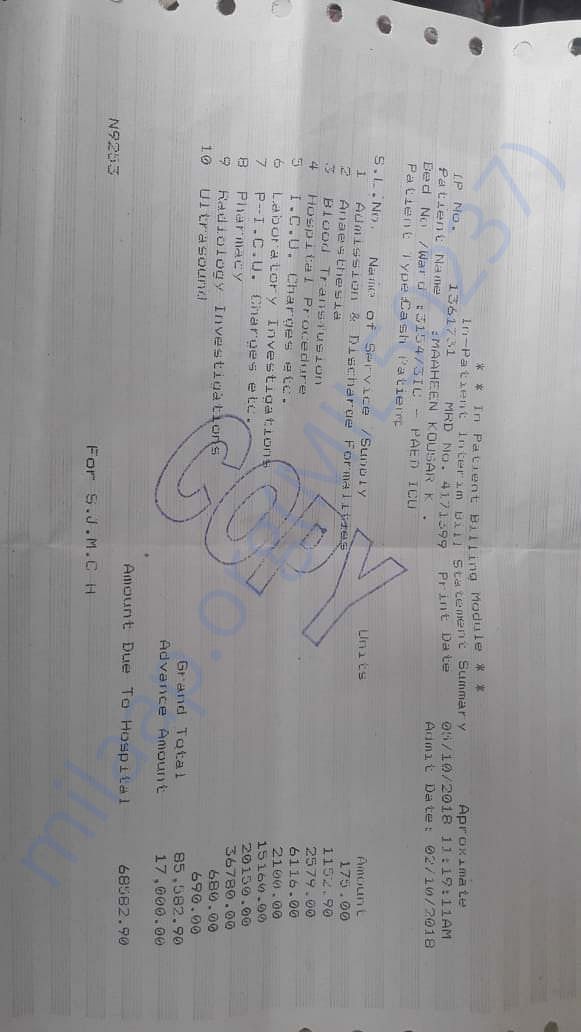 * * In Patient Billing Module * *
In-Patient Interim Bill Statement Summary Aproximate
IP No. 1361731 MRD No. 4171399 Print Date 05/10/2018 11:19:11AM
Patient Name :MAAHEEN KOUSAR K . Admit Date: 02/10/2018
Bed No /Ward :3154/3IC - PAED ICU
Patient Type:Cash Patient
S.L.No. Name of Service /Supply Units Amount
1 Admission & Discharge Formalities 175.00
2 Anaesthesia 1152.90
3 Blood Transfusion 2579.00
4 Hospital Procedure 6116.00
5 I.C.U. Charges etc. 2100.00
6 Laboratory Investigations 15160.00
7 P-I.C.U. Charges etc. 20150.00
8 Pharmacy 36780.00
9 Radiology Investigations 680.00
10 Ultrasound 690.00
Grand Total 85,582.90
Advance Amount 17,000.00
Amount Due To Hospital 68582.90
For S.J.M.C.H
N9253
COPY
milaap.org